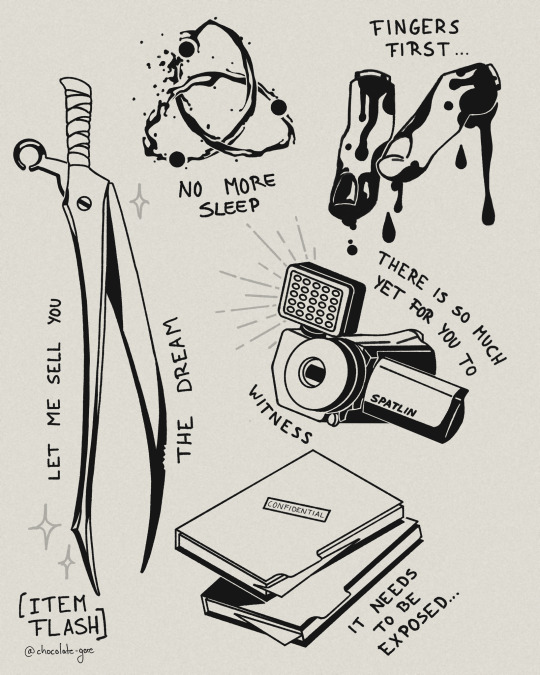 FINGERS
FIRST...
NO MORE
SLEEP
THERE IS SO MUCH
YET FOR YOU TO
WITNESS
SPATLIN
LET ME SELL YOU
THE DREAM
CONFIDENTIAL
IT NEEDS
TO BE
EXPOSED...
[ITEM
FLASH]
@chocolate-gore